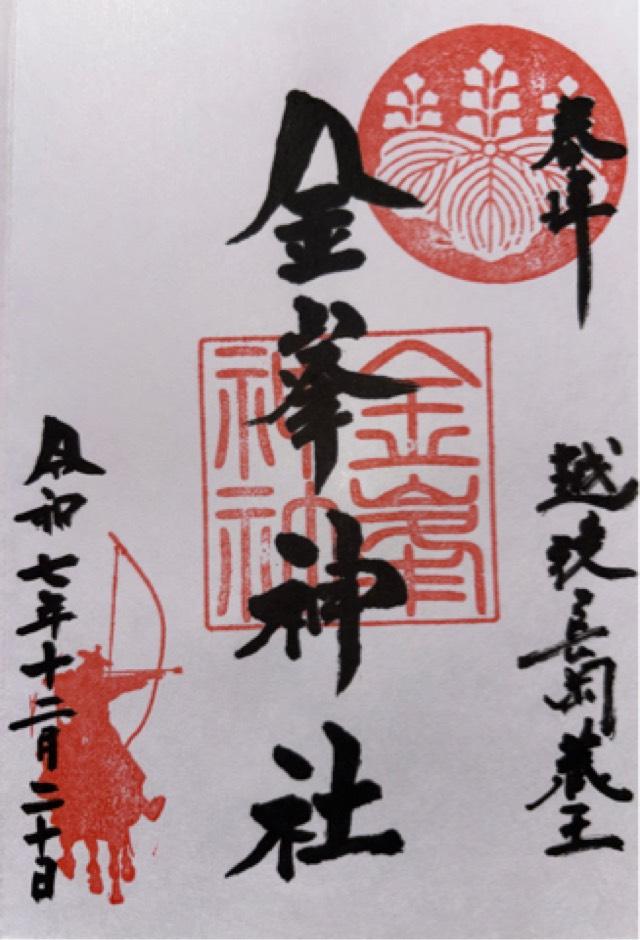 奉拝
越後長岡蔵王
金峯神社
金峯
神社
令和七年十二月二十日